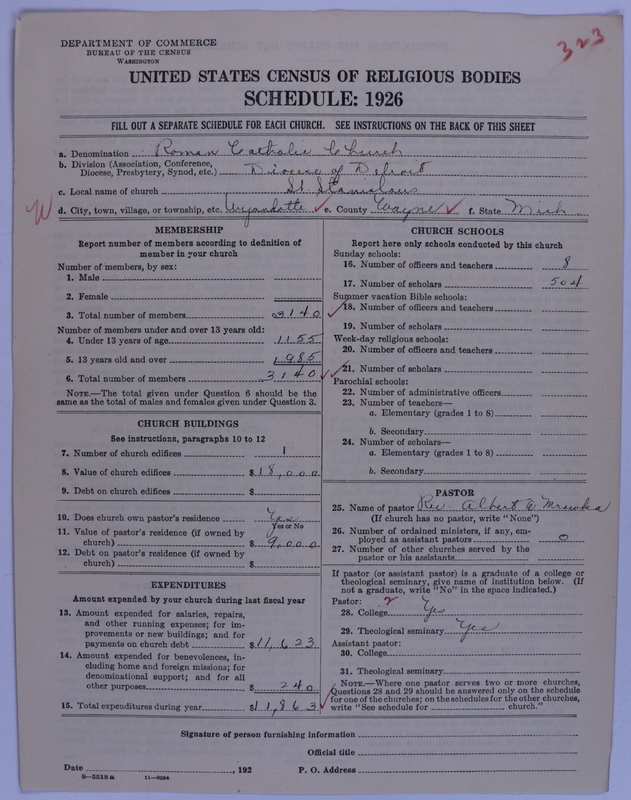 323
DEPARTMENT OF COMMERCE
BUREAU OF THE CENSUS
WASHINGTON
UNITED STATES CENSUS OF RELIGIOUS BODIES
SCHEDULE: 1926
FILL OUT A SEPARATE SCHEDULE FOR EACH CHURCH. SEE INSTRUCTIONS ON THE BACK OF THIS SHEET
a. Denomination Roman Catholic Church
b. Division (Association, Conference, Diocese, Presbytery, Synod, etc.) Diocese of Detroit
c. Local name of church St Stanislaus
W d. City, town, village, or township, etc. Wyandotte e. County Wayne f. State Mich
MEMBERSHIP
Report number of members according to definition of
member in your church
Number of members, by sex:
1. Male
2. Female
3. Total number of members 3140
Number of members under and over 13 years old:
4. Under 13 years of age 1155
5. 13 years old and over 1985
6. Total number of members 3140
NOTE.—The total given under Question 6 should be
same as the total of males and females given under Question 3.
CHURCH BUILDINGS
See instructions, paragraphs 10 to 12
7. Number of church edifices 1
8. Value of church edifices $18,000
9. Debt on church edifices $
10. Does church own pastor's residence Yes
Yes or No
11. Value of pastor's residence (if owned by
church) $9,000
12. Debt on pastor's residence (if owned by
church) $
EXPENDITURES
Amount expended by your church during last fiscal year
13. Amount expended for salaries, repairs,
and other running expenses; for im-
provements or new buildings; and for
payments on church debt $11,623
14. Amount expended for benevolences, in-
cluding home and foreign missions; for
denominational support; and for all
other purposes $ 240
15. Total expenditures during year $11,863
CHURCH SCHOOLS
Report here only schools conducted by this church
Sunday schools:
16. Number of officers and teachers 8
17. Number of scholars 504
Summer vacation Bible schools:
18. Number of officers and teachers
19. Number of scholars
Week-day religious schools:
20. Number of officers and teachers
21. Number of scholars
Parochial schools:
22. Number of administrative officers
23. Number of teachers—
a. Elementary (grades 1 to 8)
b. Secondary
24. Number of scholars—
a. Elementary (grades 1 to 8)
b. Secondary
PASTOR
25. Name of pastor Rev. Albert E
(If church has no pastor, write "None")
26. Number of ordained ministers, if any, em-
ployed as assistant pastors 0
27. Number of other churches served by the
pastor or his assistants
If pastor (or assistant pastor) is a graduate of a college or
theological seminary, give name of institution below. (If
not a graduate, write "No" in the space indicated.)
Pastor: 2
28. College Yes
29. Theological seminary Yes
Assistant pastor:
30. College
31. Theological seminary
NOTE.—Where one pastor serves two or more churches,
Questions 28 and 29 should be answered only on the schedule
for one of the churches; on the schedules for the other churches,
write "See schedule for church."
Signature of person furnishing information
Official title
Date , 192 P. O. Address
8—5518 a 11—9084